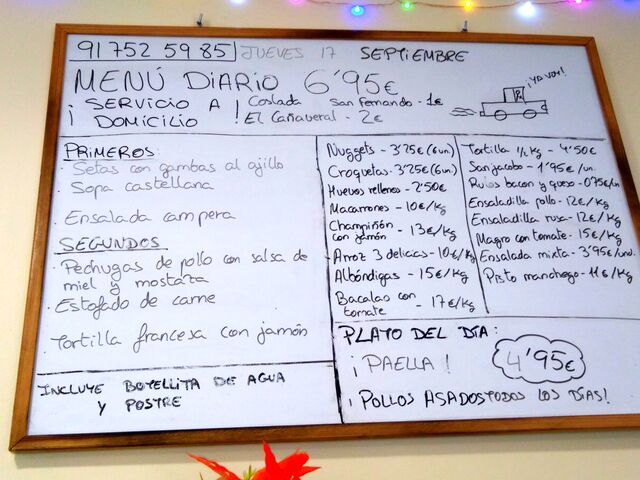 91 752 59 85 JUEVES 17 SEPTIEMBRE
MENÚ DIARIO 6'95€
¡YA VOY!
¡ SERVICIO A DOMICILIO !
Coslada San Fernando - 1€
El Cañaveral - 2€
PRIMEROS:
· Setas con gambas al ajillo
· Sopa castellana
· Ensalada campera
SEGUNDOS
· Pechugas de pollo con salsa de
miel y mostaza
· Estofado de carne
· Tortilla francesa con jamón
INCLUYE BOTELLITA DE AGUA
Y POSTRE
Nuggets - 3'25€ (6un)
Croquetas - 3'25€ (6un)
Huevos rellenos - 2'50€
Macarrones - 10€/kg
Champiñón
con jamón - 13€/kg
Arroz 3 delicias - 10€/kg
Albóndigas - 15€/kg
Bacalao con
tomate - 17€/kg
Tortilla 1/2 kg - 4'50€
San jacobo - 1'95€/un.
Rulos bacon y queso - 0'75€/un
Ensaladilla pollo - 12€/kg
Ensaladilla rusa - 12€/kg
Magro con tomate - 15€/kg
Ensalada mixta - 3'95€/und.
Pisto manchego - 11€/kg
PLATO DEL DÍA:
¡PAELLA! 4'95€
¡POLLOS ASADOS TODOS LOS DÍAS!